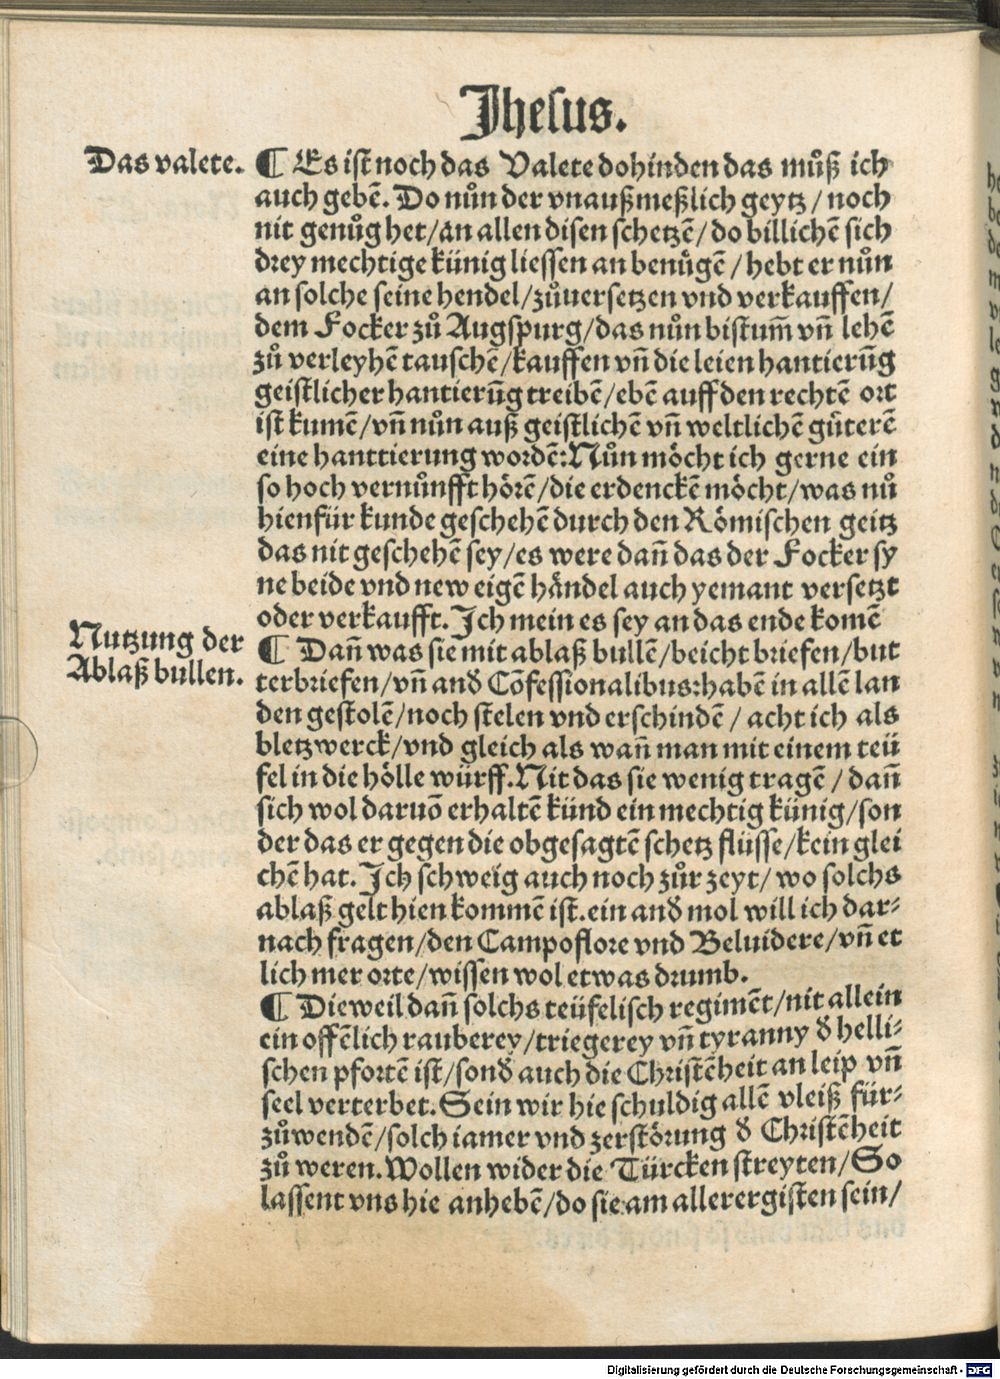 Jhesus.
Das valete. ¶ Es ist noch das Valete dohinden das můß ich
auch gebē. Do nůn der vnaußmeßlich geytz / noch
nit genůg het/an allen disen schetzē/do billichē sich
drey mechtige künig liessen an benůgē/hebt er nůn
an solche seine hendel/zůuersetzen vnd verkauffen/
dem Focker zů Augspurg/das nůn bistum̄ vn̄ lehē
zů verleyhē tauschē/kauffen vn̄ die leien hantierūg
geistlicher hantierūg treibē/ebē auff den rechtē ort
ist kumē/vn̄ nůn auß geistlichē vn̄ weltlichē gůterē
eine hanttierung wordē:Nůn möcht ich gerne ein
so hoch vernůnfft hörē/die erdenckē möcht/was nů
hienfür kunde geschehē durch den Römischen geitz
das nit geschehē sey/es were dan̄ das der Focker sy
ne beide vnd new eigē håndel auch yemant versetzt
oder verkaufft. Jch mein es sey an das ende komē
Nutzung der
Ablaß bullen.
¶ Dan̄ was sie mit ablaß bullē/beicht briefen/but
terbriefen/vn̄ and̄ Cōfessionalibus:habē in allē lan
den gestolē/noch stelen vnd erschindē / acht ich als
bletzwerck/vnd gleich als wan̄ man mit einem teü
fel in die hölle würff. Nit das sie wenig tragē / dan̄
sich wol daruō erhaltē künd ein mechtig künig/son
der das er gegen die obgesagtē schetz flüsse/kein glei
chē hat. Jch schweig auch noch zůr zeyt/ wo solchs
ablaß gelt hien kommē ist. ein and̄ mol will ich dar⸗
nach fragen/den Campoflore vnd Beluidere/vn̄ et
lich mer orte/wissen wol etwas drumb.
¶ Dieweil dan̄ solchs teüfelisch regimēt/nit allein
ein offēlich rauberey/triegerey vn̄ tyranny d̄ helli⸗
schen pfortē ist/sond̄ auch die Christēheit an leip vn̄
seel verterbet. Sein wir hie schuldig allē vleiß für⸗
zůwendē/solch iamer vnd zerstörung d̄ Christēheit
zů weren. Wollen wider die Türcken streyten/So
lassent vns hie anhebē/do sie am allerergisten sein/
Digitalisierung gefördert durch die Deutsche Forschungsgemeinschaft - DFG